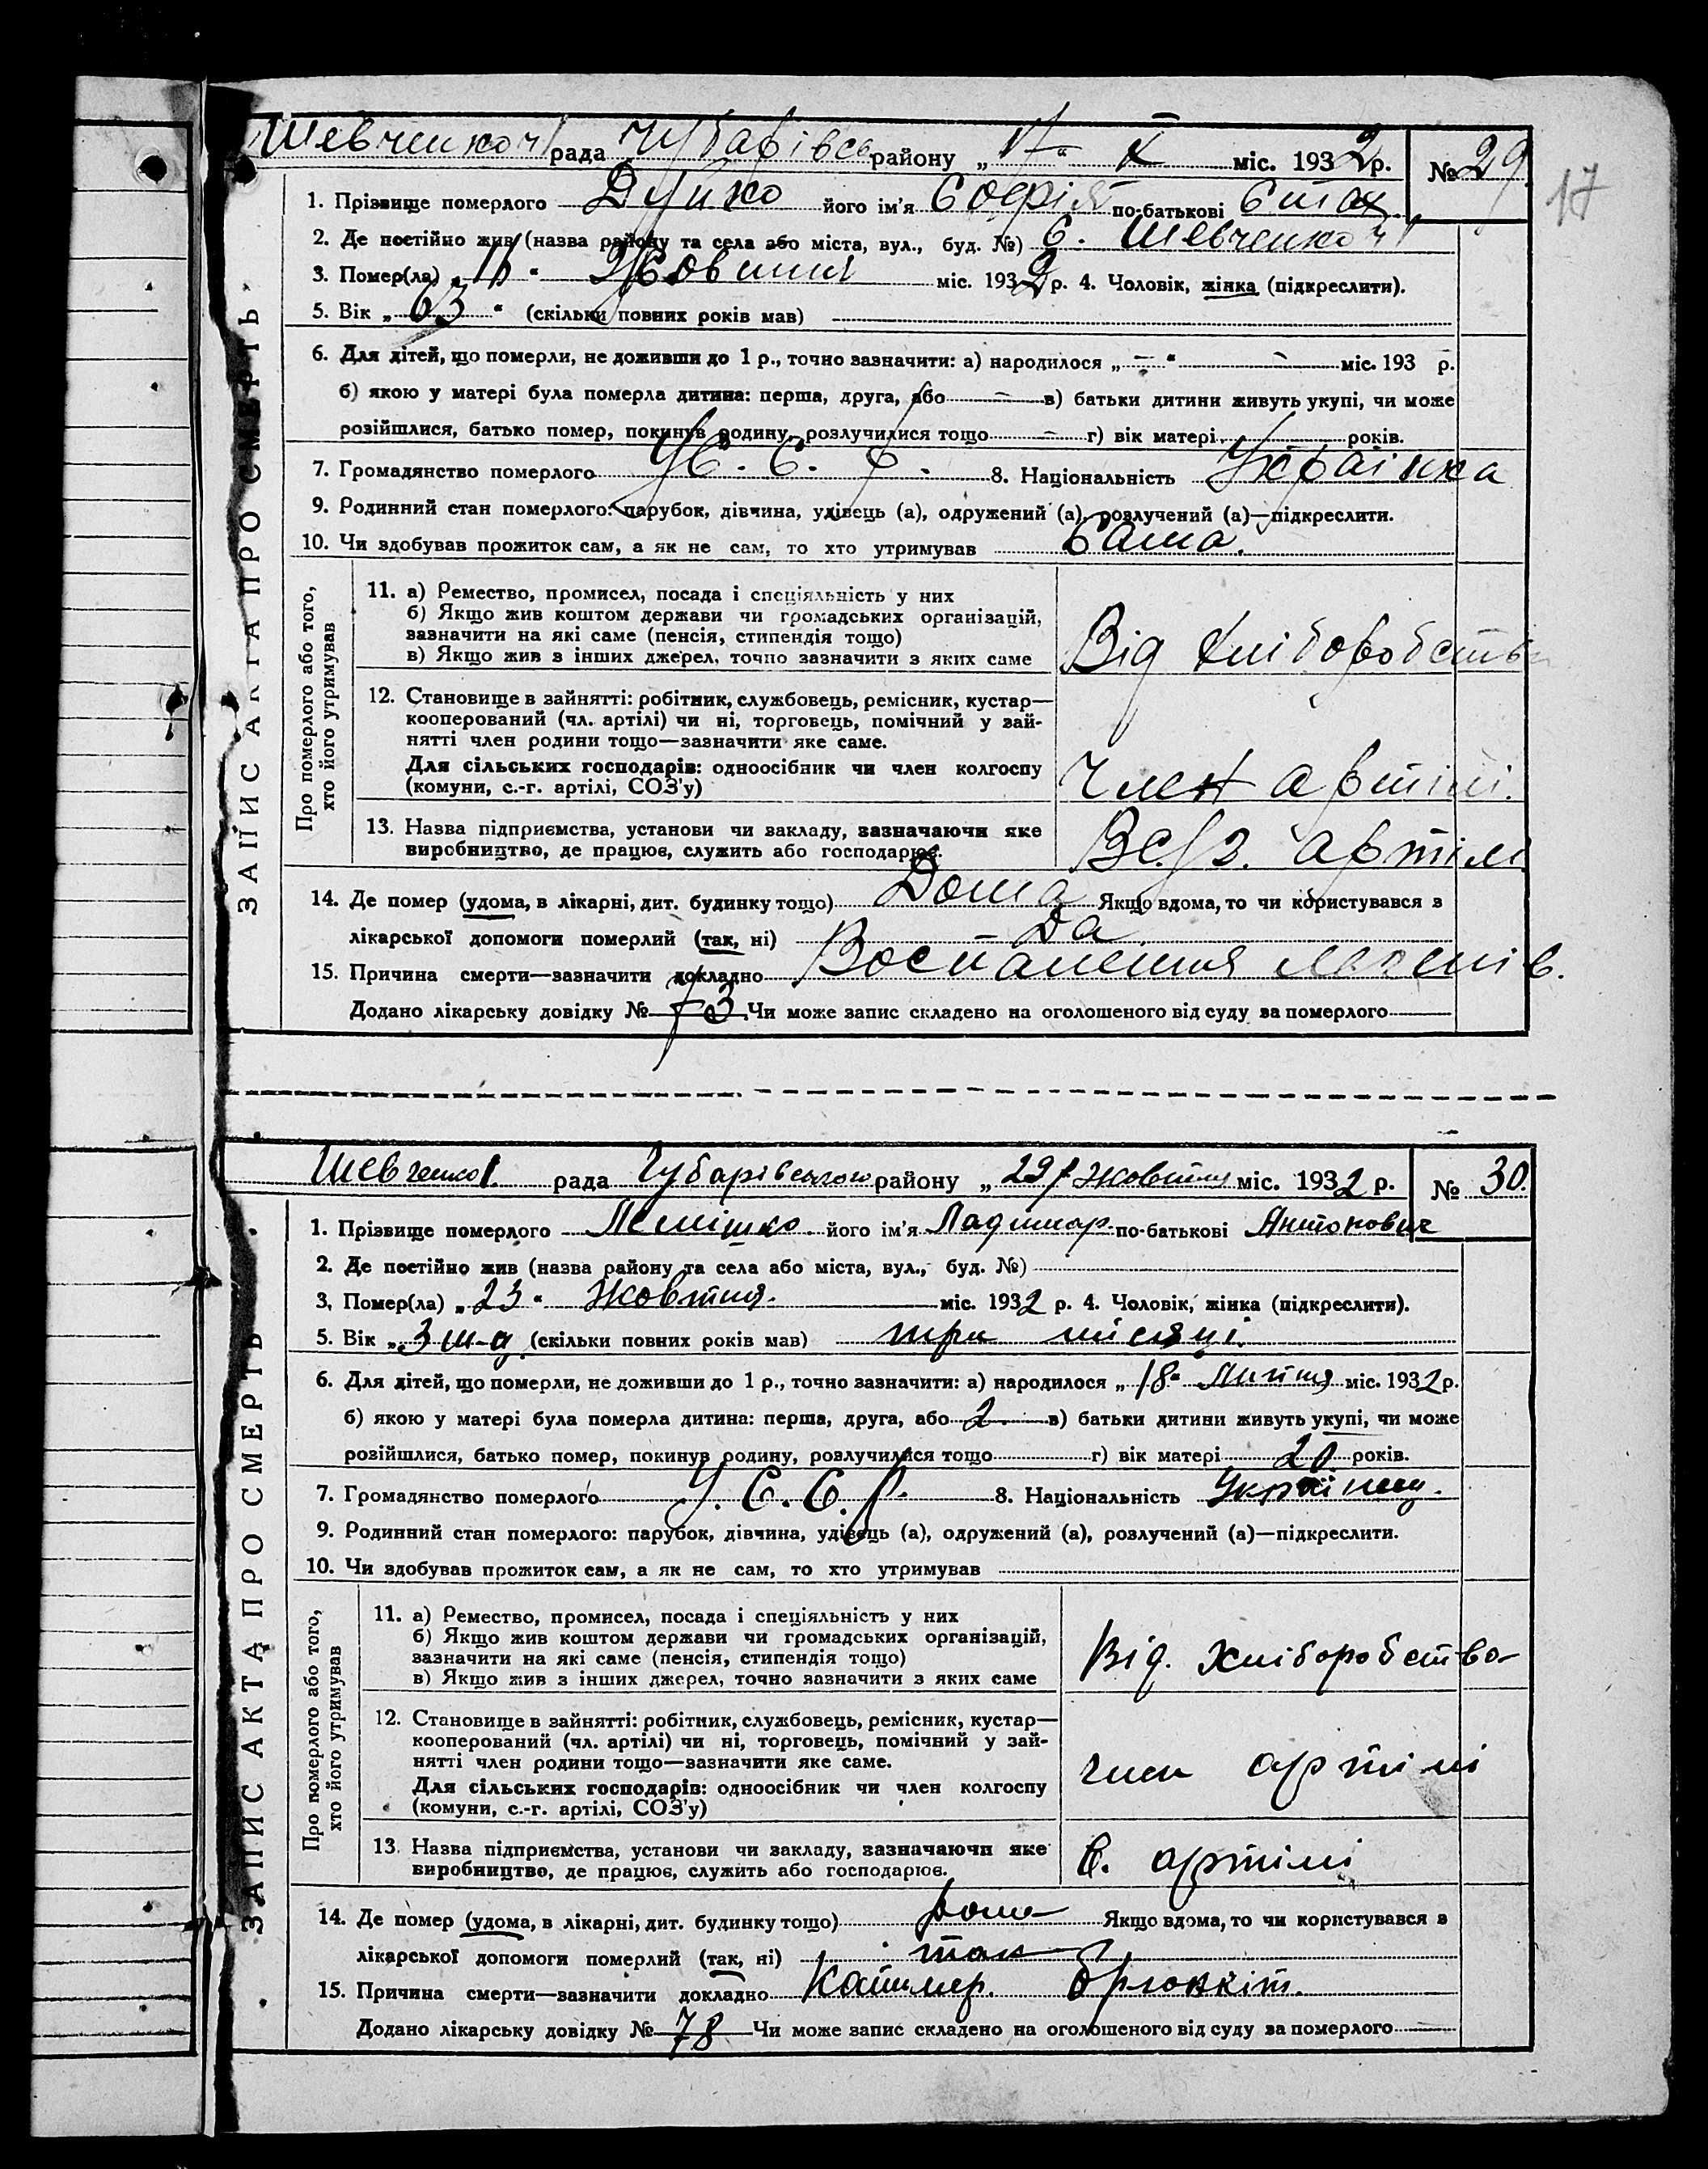 Шевченко рада Чубарівсь району „17“ X міс. 1932 р. № 29
17
1. Прізвище померлого Дуйко його ім'я Софія по-батькові Стах
2. Де постійно жив (назва району та села або міста, вул., буд. №) С. Шевченко
3. Помер(ла) „ “ Жовтня міс. 1932 р. 4. Чоловік, жінка (підкреслити).
5. Вік „63“ (скільки повних років мав)
6. Для дітей, що померли, не доживши до 1 р., точно зазначити: а) народилося „—“ — міс. 193 р.
б) якою у матері була померла дитина: перша, друга, або — в) батьки дитини живуть укупі, чи може
розійшлися, батько помер, покинув родину, розлучилися тощо — г) вік матері років.
7. Громадянство померлого УС. С. Р. 8. Національність Українка
9. Родинний стан померлого: парубок, дівчина, удівець (а), одружений (а), розлучений (а)—підкреслити.
10. Чи здобував прожиток сам, а як не сам, то хто утримував Сама.
ЗАПИС АКТА ПРО СМЕРТЬ
Про померлого або того, хто його утримував
11. а) Ремество, промисел, посада і спеціяльність у них
б) Якщо жив коштом держави чи громадських організацій,
зазначити на які саме (пенсія, стипендія тощо)
в) Якщо жив з інших джерел, точно зазначити з яких саме
Від хліборобства
12. Становище в зайнятті: робітник, службовець, ремісник, кустар—
кооперований (чл. артілі) чи ні, торговець, помічний у зай-
нятті член родини тощо—зазначити яке саме.
Для сільських господарів: одноосібник чи член колгоспу
(комуни, с.-г. артілі, СОЗ'у)
Член артілі.
13. Назва підприємства, установи чи закладу, зазначаючи яке
виробництво, де працює, служить або господарює.
артілі
14. Де помер (удома, в лікарні, дит. будинку тощо) Дома Якщо вдома, то чи користувався з
лікарської допомоги померлий (так, ні) Да
15. Причина смерти—зазначити докладно Воспаления
Додано лікарську довідку № 73 Чи може запис складено на оголошеного від суду за померлого
Шевченко рада Чубарівського району „29“ Жовтня міс. 1932 р. № 30.
1. Прізвище померлого Лемішко його ім'я Ладимир по-батькові Антонович
2. Де постійно жив (назва району та села або міста, вул., буд. №)
3. Помер(ла) „23“ Жовтня. міс. 1932 р. 4. Чоловік, жінка (підкреслити).
5. Вік „3 м-ц (скільки повних років мав) три місяці.
6. Для дітей, що померли, не доживши до 1 р., точно зазначити: а) народилося „18“ Липня міс. 1932 р.
б) якою у матері була померла дитина: перша, друга, або 2. в) батьки дитини живуть укупі, чи може
розійшлися, батько помер, покинув родину, розлучилися тощо г) вік матері 20 років.
7. Громадянство померлого У. С. С. Р. 8. Національність Українец.
9. Родинний стан померлого: парубок, дівчина, удівець (а), одружений (а), розлучений (а)—підкреслити.
10. Чи здобував прожиток сам, а як не сам, то хто утримував
ЗАПИС АКТА ПРО СМЕРТЬ
Про померлого або того, хто його утримував
11. а) Ремество, промисел, посада і спеціяльність у них
б) Якщо жив коштом держави чи громадських організацій,
зазначити на які саме (пенсія, стипендія тощо)
в) Якщо жив з інших джерел, точно зазначити з яких саме
Від. хліборобство
12. Становище в зайнятті: робітник, службовець, ремісник, кустар—
кооперований (чл. артілі) чи ні, торговець, помічний у зай-
нятті член родини тощо—зазначити яке саме.
Для сільських господарів: одноосібник чи член колгоспу
(комуни, с.-г. артілі, СОЗ'у)
член артілі
13. Назва підприємства, установи чи закладу, зазначаючи яке
виробництво, де працює, служить або господарює.
в. артілі
14. Де помер (удома, в лікарні, дит. будинку тощо) дома Якщо вдома, то чи користувався з
лікарської допомоги померлий (так, ні) так
15. Причина смерти—зазначити докладно Катимер. бронхіт.
Додано лікарську довідку № 78 Чи може запис складено на оголошеного від суду за померлого